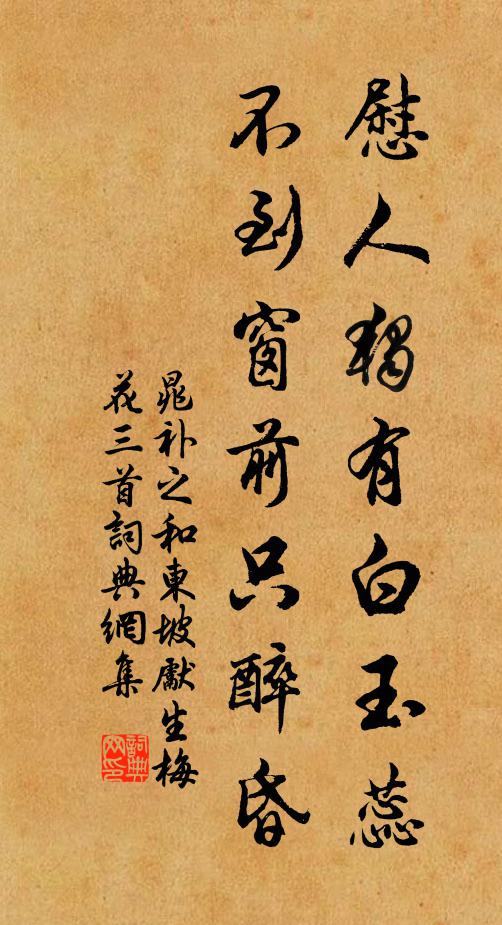 慰人獨有白玉蕊
不到窗前只醉昏
晁补之和東坡獻生梅
花三首詞典網集
詞典
网印